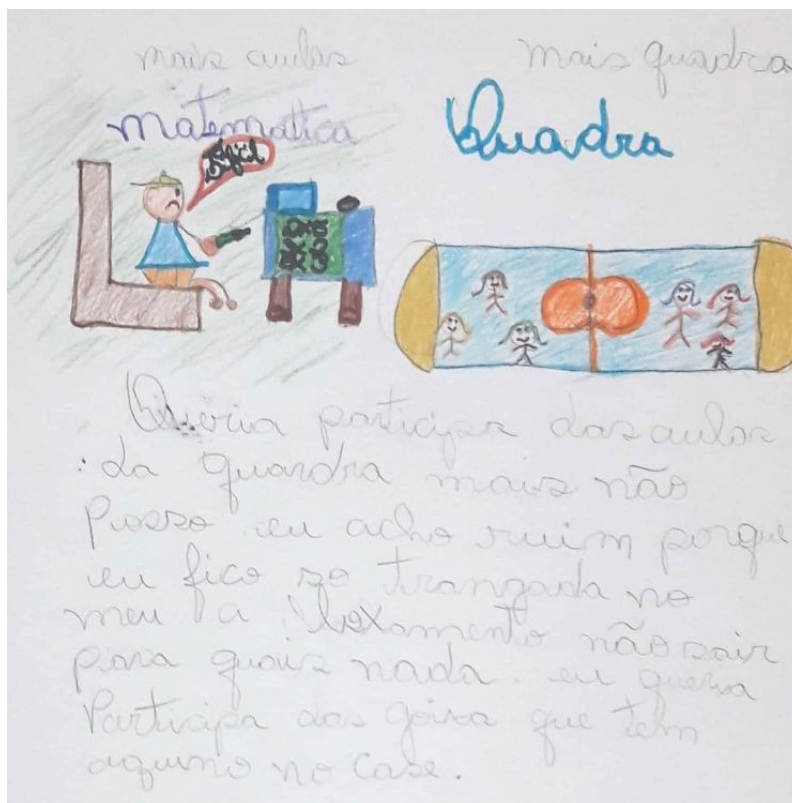 mais aulas
mais quadra
matematica
Quadra
Difícil
Queria participa das aulas
da quardra mais não
posso eu acho ruim porque
eu fico so trangada no
meu a loxamento não sair
para quais nada. eu queria
Participa das goisa que tem
aquino no case.